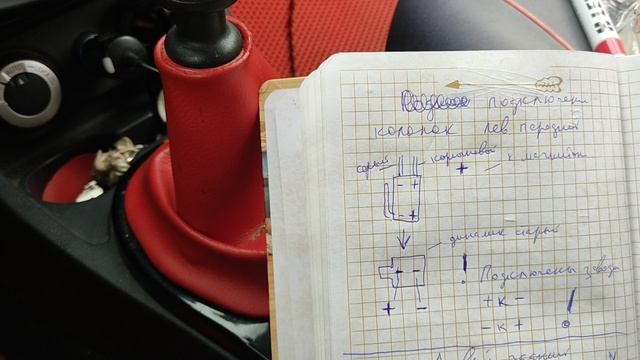 Подключени
колонок лев передной
серый коричневый + к магнитоле
- +
- +
динамик старый
+ -
+ - ! Подключены завода
+ к -
- к + !